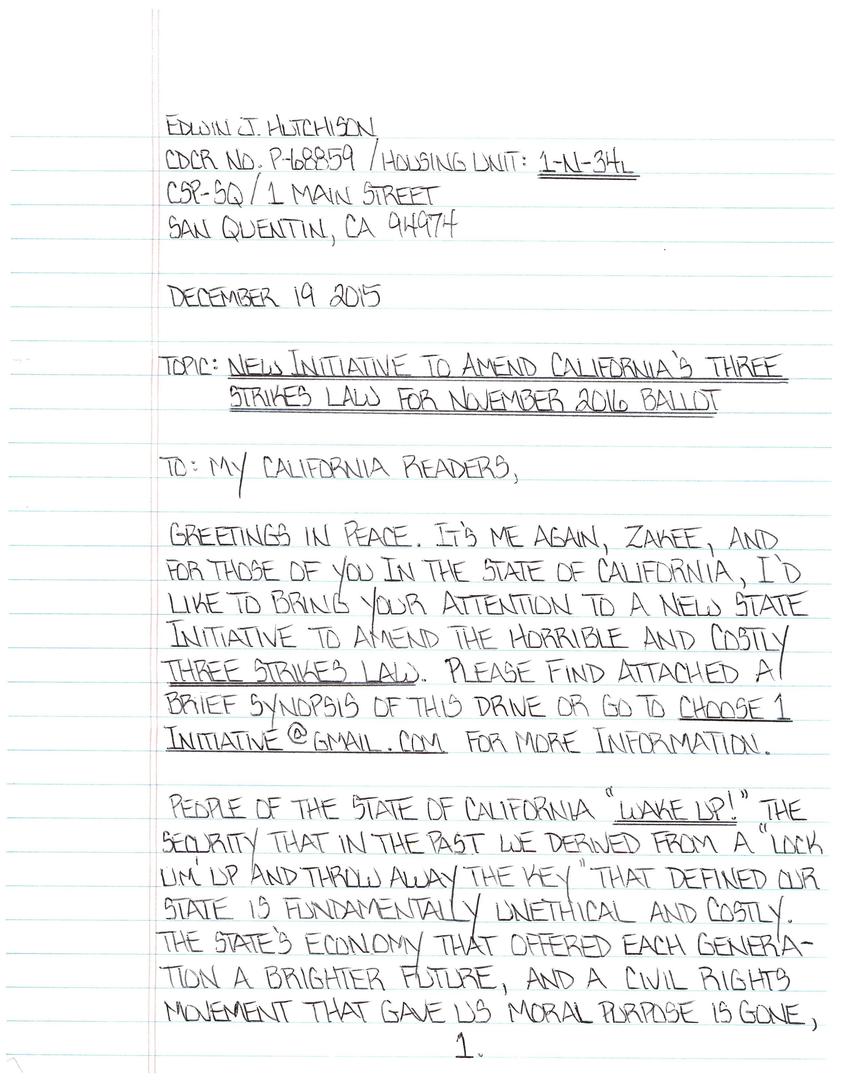 EDWIN J. HUTCHISON
CDCR NO. P-68859 / HOUSING UNIT: 1-N-34L
CSP-SQ / 1 MAIN STREET
SAN QUENTIN, CA 94974
DECEMBER 19 2015
TOPIC: NEW INITIATIVE TO AMEND CALIFORNIA'S THREE
STRIKES LAW FOR NOVEMBER 2016 BALLOT
TO: MY CALIFORNIA READERS,
GREETINGS IN PEACE. IT'S ME AGAIN, ZAKEE, AND
FOR THOSE OF YOU IN THE STATE OF CALIFORNIA, I'D
LIKE TO BRING YOUR ATTENTION TO A NEW STATE
INITIATIVE TO AMEND THE HORRIBLE AND COSTLY
THREE STRIKES LAW. PLEASE FIND ATTACHED A
BRIEF SYNOPSIS OF THIS DRIVE OR GO TO CHOOSE 1
INITIATIVE@GMAIL.COM FOR MORE INFORMATION.
PEOPLE OF THE STATE OF CALIFORNIA "WAKE UP!" THE
SECURITY THAT IN THE PAST WE DERIVED FROM A "LOCK
UM' UP AND THROW AWAY THE KEY" THAT DEFINED OUR
STATE IS FUNDAMENTALLY UNETHICAL AND COSTLY.
THE STATE'S ECONOMY THAT OFFERED EACH GENERA-
TION A BRIGHTER FUTURE, AND A CIVIL RIGHTS
MOVEMENT THAT GAVE US MORAL PURPOSE IS GONE,
1.